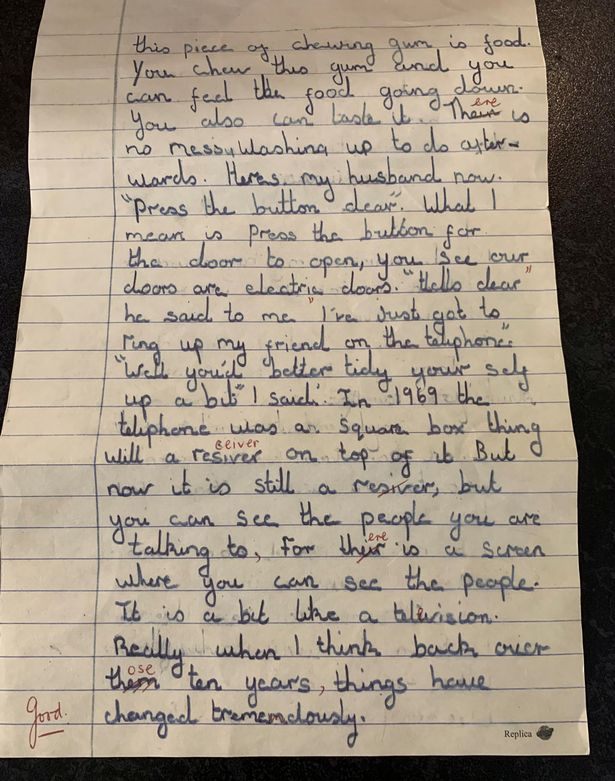 this piece of chewing gum is food.
You chew this gum and you
can feel the food going down.
ere
You also can taste it. Their is
no messy washing up to do after-
wards. Heres my husband now.
"Press the button dear". What I
mean is press the button for
the door to open, you see our
doors are electric doors. "Hello dear"
he said to me "I've just got to
ring up my friend on the telephone".
"Well you'd better tidy your self
up a bit" I said. In 1969 the
telephone was a square box thing
ceiver
will a resiver on top of it But
now it is still a resiver, but
you can see the people you are
ere
talking to, for their is a screen
where you can see the people.
It is a bit like a television.
Really when I think back over
ose
them ten years, things have
Good.
changed tremendously.
Replica